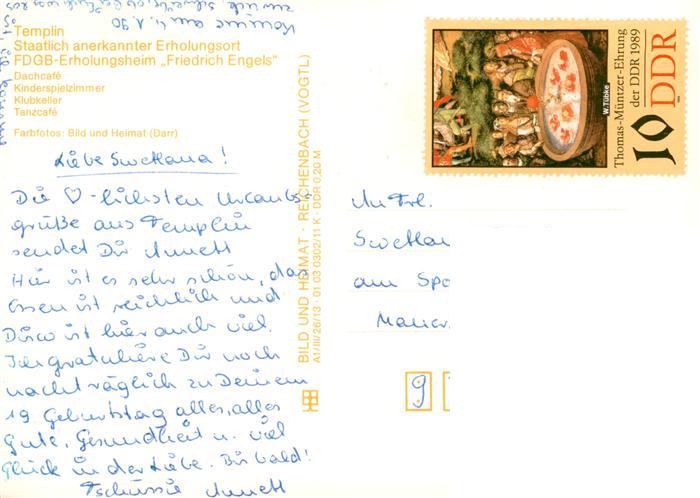 Templin
Staatlich anerkannter Erholungsort
FDGB-Erholungsheim „Friedrich Engels“
Dachcafé
Kinderspielzimmer
Klubkeller
Tanzcafé
Farbfotos: Bild und Heimat (Darr)
Liebe Swetlana!
Die ♡-lichsten Urlaubs-
grüße aus Templin
sendet Dir Annett
Hier ist es sehr schön, das
Essen ist reichlich und
Disco ist hier auch viel.
Ich gratuliere Dir noch
nachträglich zu Deinem
19 Geburtstag alles, alles
Gute, Gesundheit u. viel
Glück in der Liebe. Bis bald!
Tschüssie Annett
Komme am 4.1.90
zurück
BILD UND HEIMAT · REICHENBACH (VOGTL)
A1/III/26/13 · 01 03 0302/11 K · DDR 0,20 M
W. Tübke
Thomas-Müntzer-Ehrung
der DDR 1989
10 DDR
An Frl.
Swetlan
am Spo
9